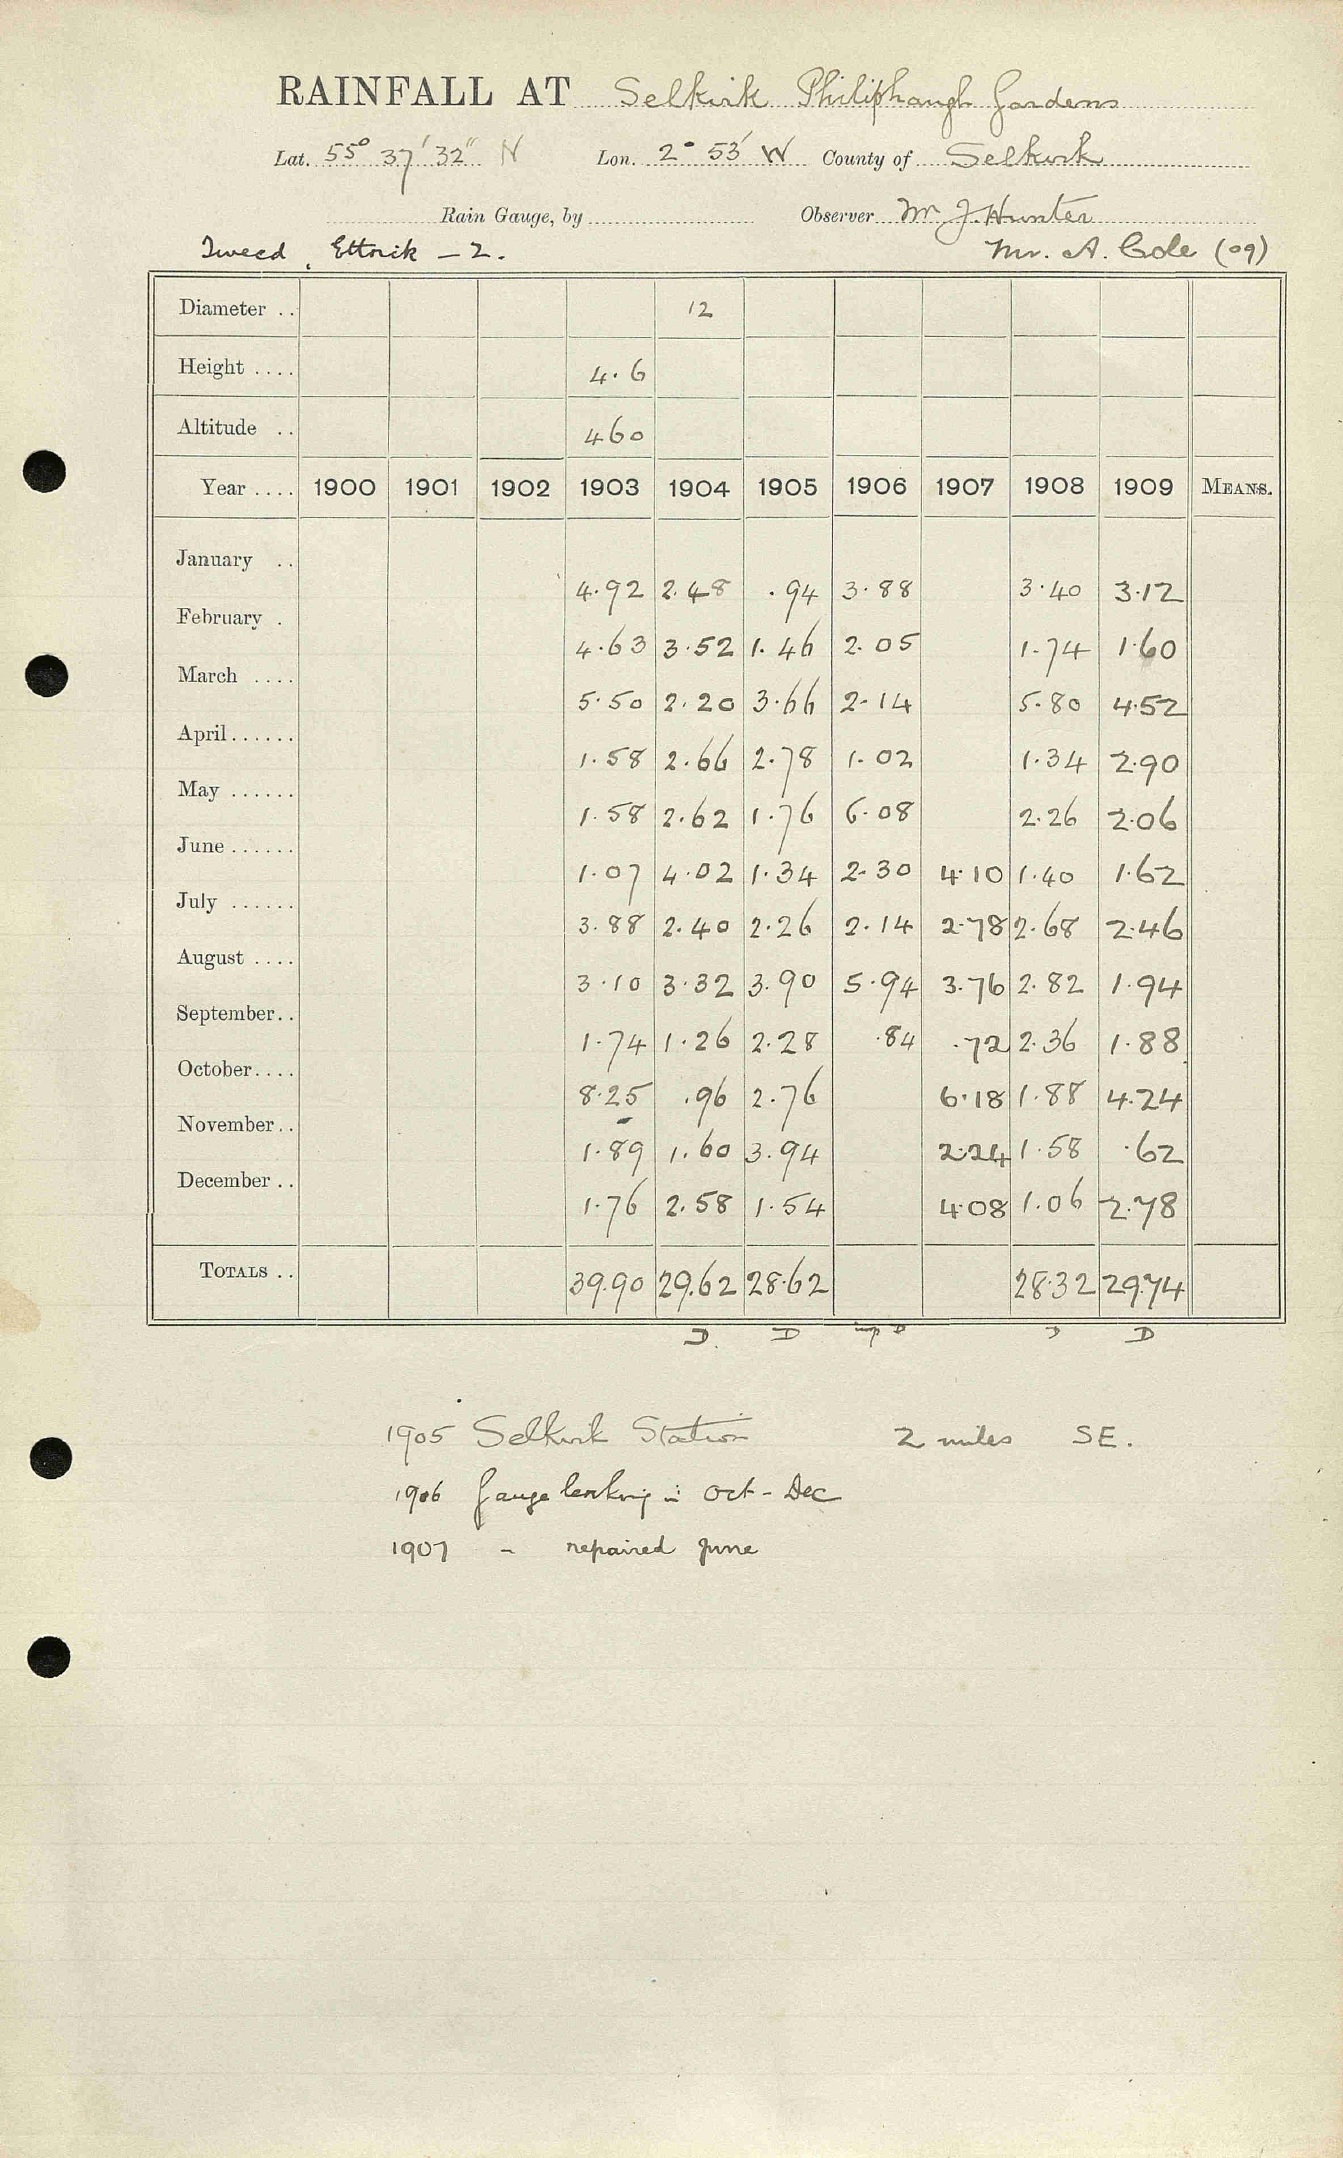 RAINFALL AT Selkirk Philiphaugh Gardens
Lat. 55° 37' 32" N Lon. 2° 53' W County of Selkirk
Rain Gauge, by Observer Mr J. Hunter
Tweed, Ettrick - 2. Mr. A. Cole (09)
Diameter .. 12
Height .... 4.6
Altitude .. 460
Year .... 1900 1901 1902 1903 1904 1905 1906 1907 1908 1909 MEANS.
January .. 4.92 2.48 .94 3.88 3.40 3.12
February . 4.63 3.52 1.46 2.05 1.74 1.60
March .... 5.50 2.20 3.66 2.14 5.80 4.52
April...... 1.58 2.66 2.78 1.02 1.34 2.90
May ...... 1.58 2.62 1.76 6.08 2.26 2.06
June ...... 1.07 4.02 1.34 2.30 4.10 1.40 1.62
July ...... 3.88 2.40 2.26 2.14 2.78 2.68 2.46
August .... 3.10 3.32 3.90 5.94 3.76 2.82 1.94
September.. 1.74 1.26 2.28 .84 .72 2.36 1.88
October.... 8.25 .96 2.76 6.18 1.88 4.24
November.. 1.89 1.60 3.94 2.24 1.58 .62
December .. 1.76 2.58 1.54 4.08 1.06 2.78
TOTALS .. 39.90 29.62 28.62 28.32 29.74
D. D D D D
1905 Selkirk Station 2 miles SE.
1906 Gauge leaking in Oct - Dec
1907 - repaired June